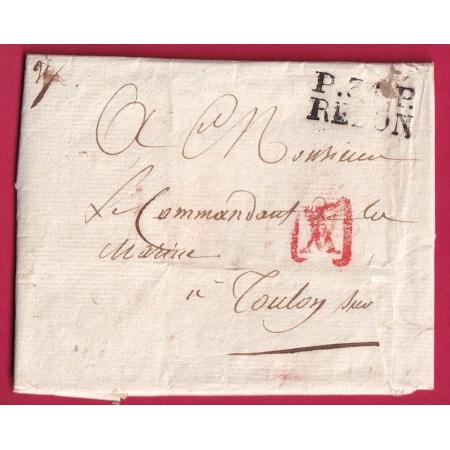 P. 34. P.
REDON
A Monsieur
Le Commandant de la
Marine
à Toulon